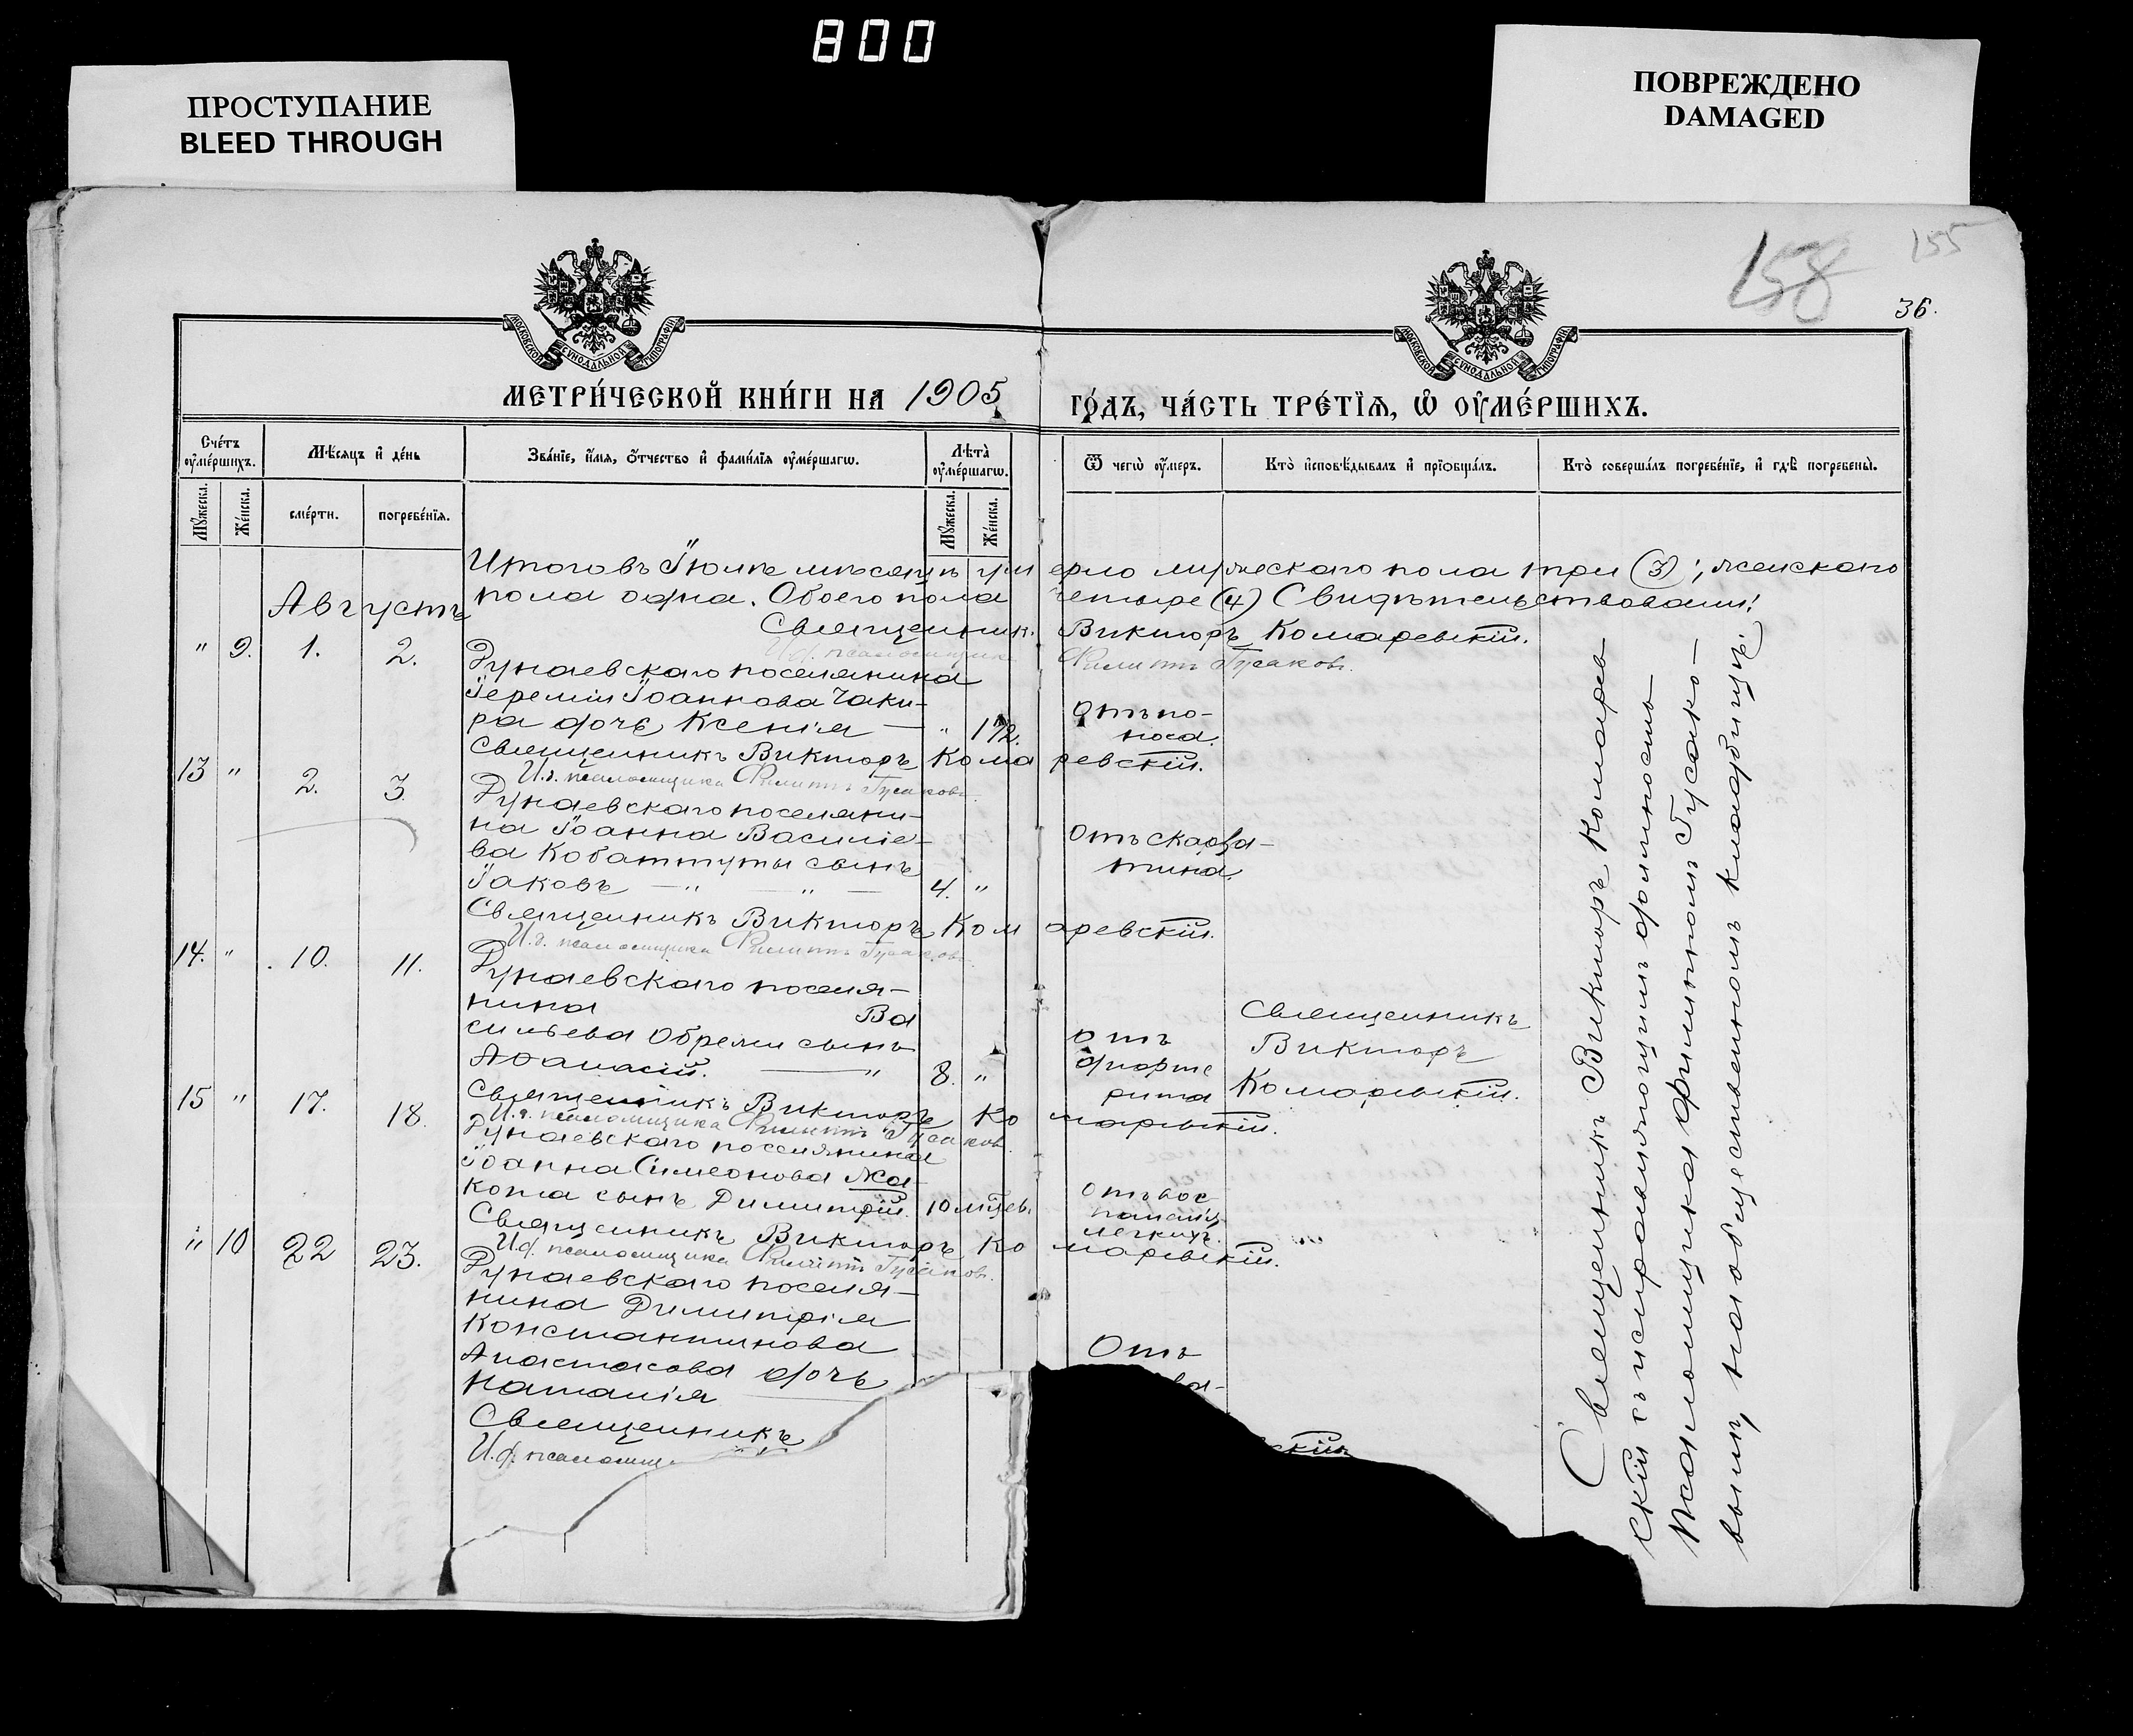 800
ПРОСТУПАНИЕ
BLEED THROUGH
ПОВРЕЖДЕНО
DAMAGED
158
155
36.
МОСКОВСКОЙ СѴНОДАЛЬНОЙ ТИПОГРАФІИ
МОСКОВСКОЙ СѴНОДАЛЬНОЙ ТИПОГРАФІИ
МЕТРИ́ЧЕСКОЙ КНИ́ГИ НА 1905 ГО́ДЪ, ЧА́СТЬ ТРЕ́ТЇѦ, Ѽ ОУ҆МЕ́РШИХЪ.
Сче́тъ оу҆ме́ршихъ.
Мѣ́сяцъ и҆ де́нь
Зва́нїе, и҆́мѧ, ѻ҆́тчество и҆ фами́лїѧ оу҆ме́ршагѡ.
Лѣ́та̀ оу҆ме́ршагѡ.
Ѿ чегѡ̀ оу҆́меръ.
Кто̀ и҆сповѣ́дывалъ и҆ прїѡбща́лъ.
Кто̀ соверша́лъ погребе́нїе, и҆ гдѣ̀ погребены̀.
Мꙋ́жеска.
Же́нска.
сме́рти.
погребе́нїѧ.
Мꙋ́жеска.
Же́нска.
Итого въ Іюлѣ мѣсяцѣ умерло мужескаго пола три (3); женскаго
Августъ
пола одна. Обоего пола четыре (4) Свидѣтельствовали:
Священникъ Викторъ Комаревскій.
И.д. псаломщика Филиппъ Гусаковъ.
" 9. 1. 2.
Дунаевскаго поселянина
Іереміи Іоаннова Чаки-
ра дочь Ксенія — " 1 1/2.
Отъ по-
носа.
Священникъ Викторъ Комаревскій.
И.д. псаломщика Филиппъ Гусаковъ.
13 " 2. 3.
Дунаевскаго поселяни-
на Іоанна Василіе-
ва сынъ
Іаковъ — " — " — 4. "
Отъ скарла-
тина.
Священникъ Викторъ Комаревскій.
И.д. псаломщика Филиппъ Гусаковъ.
14. " 10. 11.
Дунаевскаго поселя-
нина Ва
сильева Обрежи сынъ
Аѳанасій. — " 8. "
отъ
дифте
рита
Священникъ
Викторъ
Комаревскій.
Священникъ Викторъ Комаревскій.
И.д. псаломщика Филиппъ Гусаковъ.
15 " 17. 18.
Дунаевскаго поселянина
Іоанна Симеонова Жа-
кота сынъ Димитрій. 10 мѣцев.
отъ вос
легкихъ.
Священникъ Викторъ Комаревскій.
И.д. псаломщика Филиппъ Гусаковъ.
" 10 22 23.
Дунаевскаго поселя-
нина Димитрія
Константинова
Анастасова дочь
Наталія —
Отъ
Священникъ
скій
И.д. псаломщ
Священникъ Викторъ Комарев
скій съ исправляющимъ должность
псаломщика Филиппомъ Гусако-
вымъ, на общественномъ кладбищѣ.